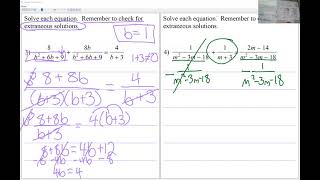 Solve each equation. Remember to check for
extraneous solutions.
b=1
3) 8/(b²+6b+9) + 8b/(b²+6b+9) = 4/(b+3)
1+3≠0
8+8b/(b+3)(b+3) = 4/(b+3)
8+8b/(b+3) = 4(b+3)
8+8b=4b+12
-8 -4b -4b -8
4b=4
Solve each equation. Remember to
extraneous solutions.
4) 1/(m²-3m-18) + 1/(m+3) = (2m-14)/(m²-3m-18)
-1/(m²-3m-18) -1/(m²-3m-18)